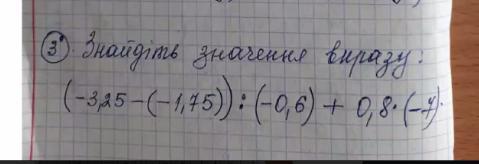 3° Знайдіть значення виразу:
(-3,25-(-1,75)):(-0,6)+0,8·(-7).